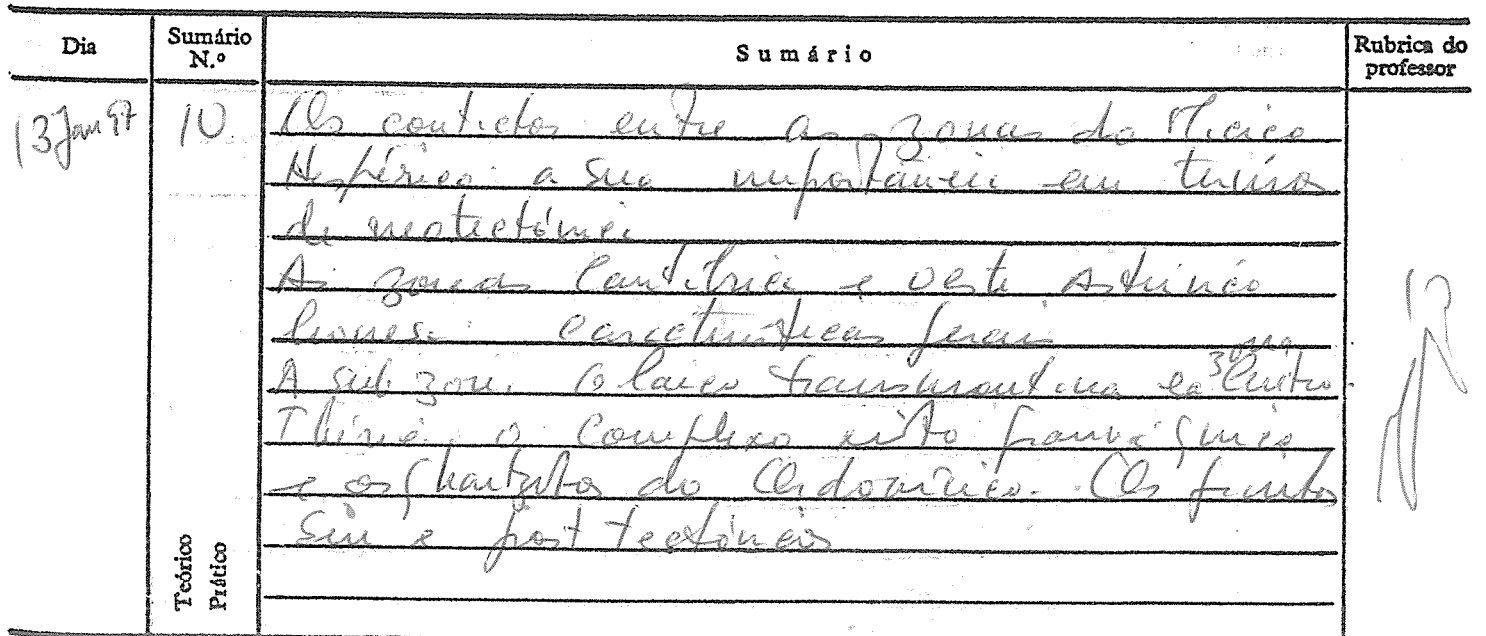 Dia
Sumário N.º
Sumário
Rubrica do professor
13 Jan 97
10
Os contactos entre as zonas do Maciço
Hespérico: a sua importância em termos
de neotectónica
As zonas Cantábrica e Oeste Asturico
leonesa: características gerais
A sub zona Galaico transmontana e a zona Centro
Ibérica. O complexo xisto grauváquico
e os quartzitos do Ordovícico. Os granitos
sin e post tectónicos
Teórico
Prático